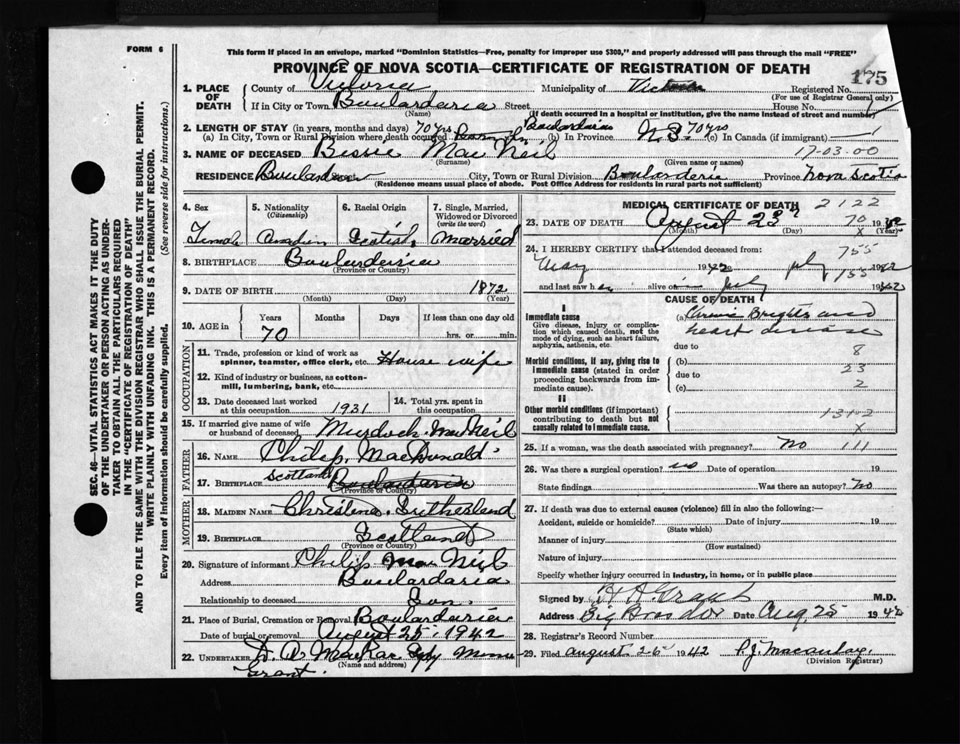 FORM 6
This form if placed in an envelope, marked "Dominion Statistics—Free, penalty for improper use $300," and properly addressed will pass through the mail "FREE"
PROVINCE OF NOVA SCOTIA—CERTIFICATE OF REGISTRATION OF DEATH
175
1. PLACE OF DEATH
County of Victoria Municipality of Victoria Registered No.
(For use of Registrar General only)
If in City or Town Boulardaria Street House No.
(Name) (If death occurred in a hospital or institution, give the name instead of street and number)
2. LENGTH OF STAY (in years, months and days) 70 yrs Boulardaria
(a) In City, Town or Rural Division where death occurred (b) In Province N.S. 70 yrs (c) In Canada (if immigrant)
3. NAME OF DECEASED Bessie MacNeil 17-03-00
(Surname) (Given name or names)
RESIDENCE City, Town or Rural Division Boularderie Province Nova Scotia
(Residence means usual place of abode. Post Office Address for residents in rural parts not sufficient)
4. Sex Female
5. Nationality (Citizenship) Canadian
6. Racial Origin Scotish
7. Single, Married, Widowed or Divorced (write the word) Married
8. BIRTHPLACE Boulardaria
(Province or Country)
9. DATE OF BIRTH 1872
(Month) (Day) (Year)
10. AGE in Years Months Days If less than one day old
70 hrs. or min.
OCCUPATION
11. Trade, profession or kind of work as spinner, teamster, office clerk, etc. House wife
12. Kind of industry or business, as cotton-mill, lumbering, bank, etc.
13. Date deceased last worked at this occupation 1931
14. Total yrs. spent in this occupation
15. If married give name of wife or husband of deceased Murdock MacNeil
FATHER
16. NAME Philip MacDonald
17. BIRTHPLACE Scotland Boulardaria
(Province or Country)
MOTHER
18. MAIDEN NAME Christena Sutherland
19. BIRTHPLACE Scotland
(Province or Country)
20. Signature of informant Philip MacNeil
Address Boulardaria
Relationship to deceased Son
21. Place of Burial, Cremation or Removal Boularderie
Date of burial or removal August 25, 1942
22. UNDERTAKER
(Name and address)
Grant.
MEDICAL CERTIFICATE OF DEATH 2122
23. DATE OF DEATH August 23 70 19
(Month) (Day) x (Year)
24. I HEREBY CERTIFY that I attended deceased from: 755
May 1942 to July 155 1942
and last saw h alive on July 1942
CAUSE OF DEATH
I
Immediate cause
Give disease, injury or complication which caused death, not the mode of dying, such as heart failure, asphyxia, asthenia, etc.
(a) Chronic Brights and
heart disease
due to 8
Morbid conditions, if any, giving rise to immediate cause (stated in order proceeding backwards from immediate cause).
(b) 23
due to
(c) 2
II
Other morbid conditions (if important) contributing to death but not causally related to immediate cause.
131-2
x
25. If a woman, was the death associated with pregnancy? No 111
26. Was there a surgical operation? no Date of operation 19
State findings Was there an autopsy? No
27. If death was due to external causes (violence) fill in also the following:—
Accident, suicide or homicide? Date of injury 19
(State which)
Manner of injury
(How sustained)
Nature of injury
Specify whether injury occurred in industry, in home, or in public place
Signed by Grant M.D.
Address Big Bras d'or Date Aug 25 1942
28. Registrar's Record Number
29. Filed August 26 1942 P.J. Macaulay
(Division Registrar)
SEC. 46—VITAL STATISTICS ACT MAKES IT THE DUTY OF THE UNDERTAKER OR PERSON ACTING AS UNDERTAKER TO OBTAIN ALL THE PARTICULARS REQUIRED IN THE "CERTIFICATE OF REGISTRATION OF DEATH" AND TO FILE THE SAME WITH THE DIVISION REGISTRAR WHO SHALL ISSUE THE BURIAL PERMIT.
WRITE PLAINLY WITH UNFADING INK. THIS IS A PERMANENT RECORD.
Every item of information should be carefully supplied. (See reverse side for instructions.)